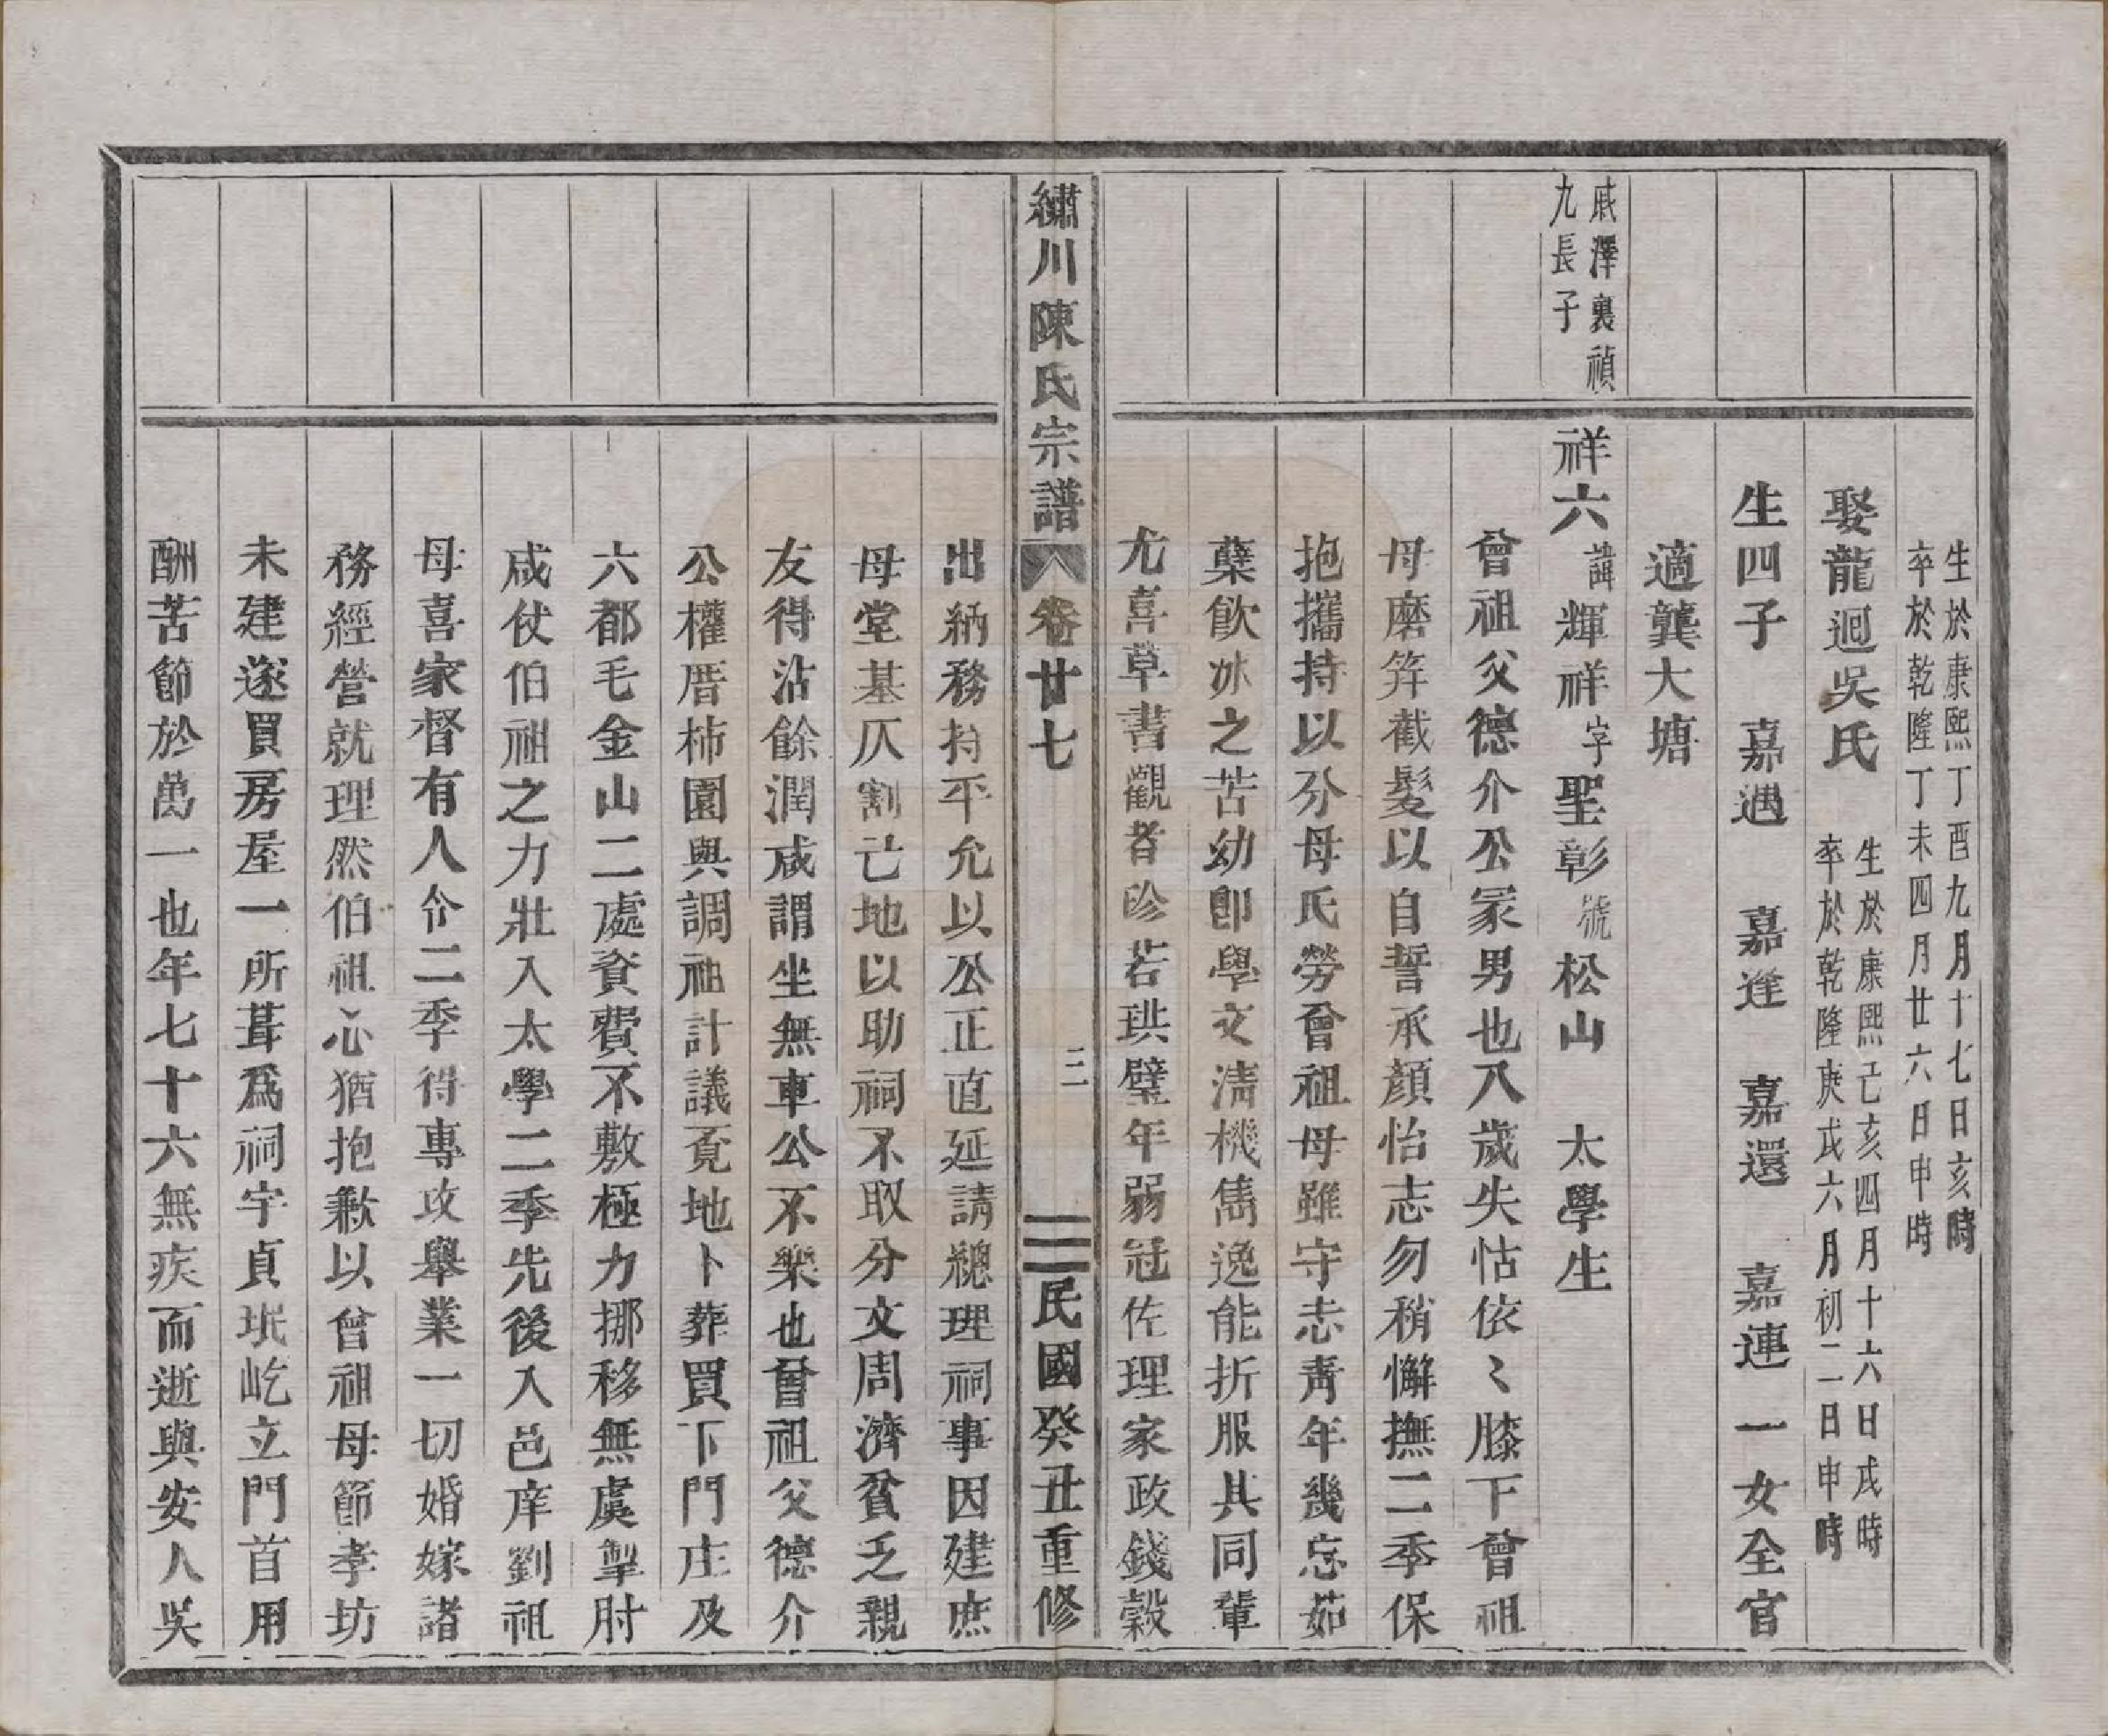 生於康熙丁酉九月十七日亥時
卒於乾隆丁未四月廿六日申時
娶龍迴吳氏
生於康熙己亥四月十六日戌時
卒於乾隆庚戌六月初二日申時
生四子 嘉遇 嘉逢 嘉還 嘉連 一女全官
適龔大塘
戚澤裏禎
九長子
祥六諱輝祥字聖彰號松山 太學生
曾祖父德介公冢男也八歲失怙依〻膝下曾祖
母磨笄截髮以自誓承顏怡志勿稍懈撫二季保
抱攜持以分母氏勞曾祖母雖守志青年幾忘茹
蘗飲冰之苦幼卽學文淸機雋逸能折服其同輩
尤喜草書觀者珍若珙璧年弱冠佐理家政錢穀
繡川陳氏宗譜 卷廿七 二 民國癸丑重修
出納務持平允以公正直延請總理祠事因建庶
母堂基仄割己地以助祠不取分文周濟貧乏親
友得沾餘潤咸謂坐無車公不樂也曾祖父德介
公權厝柿園與調祖計議覓地卜葬買下門庄及
六都毛金山二處資費不敷極力挪移無虞掣肘
咸仗伯祖之力壯入太學二季先後入邑庠劉祖
母喜家督有人令二季得專攻舉業一切婚嫁諸
務經營就理然伯祖心猶抱歉以曾祖母節孝坊
未建遂買房屋一所葺爲祠宇貞珉屹立門首用
酬苦節於萬一也年七十六無疾而逝與安人吳